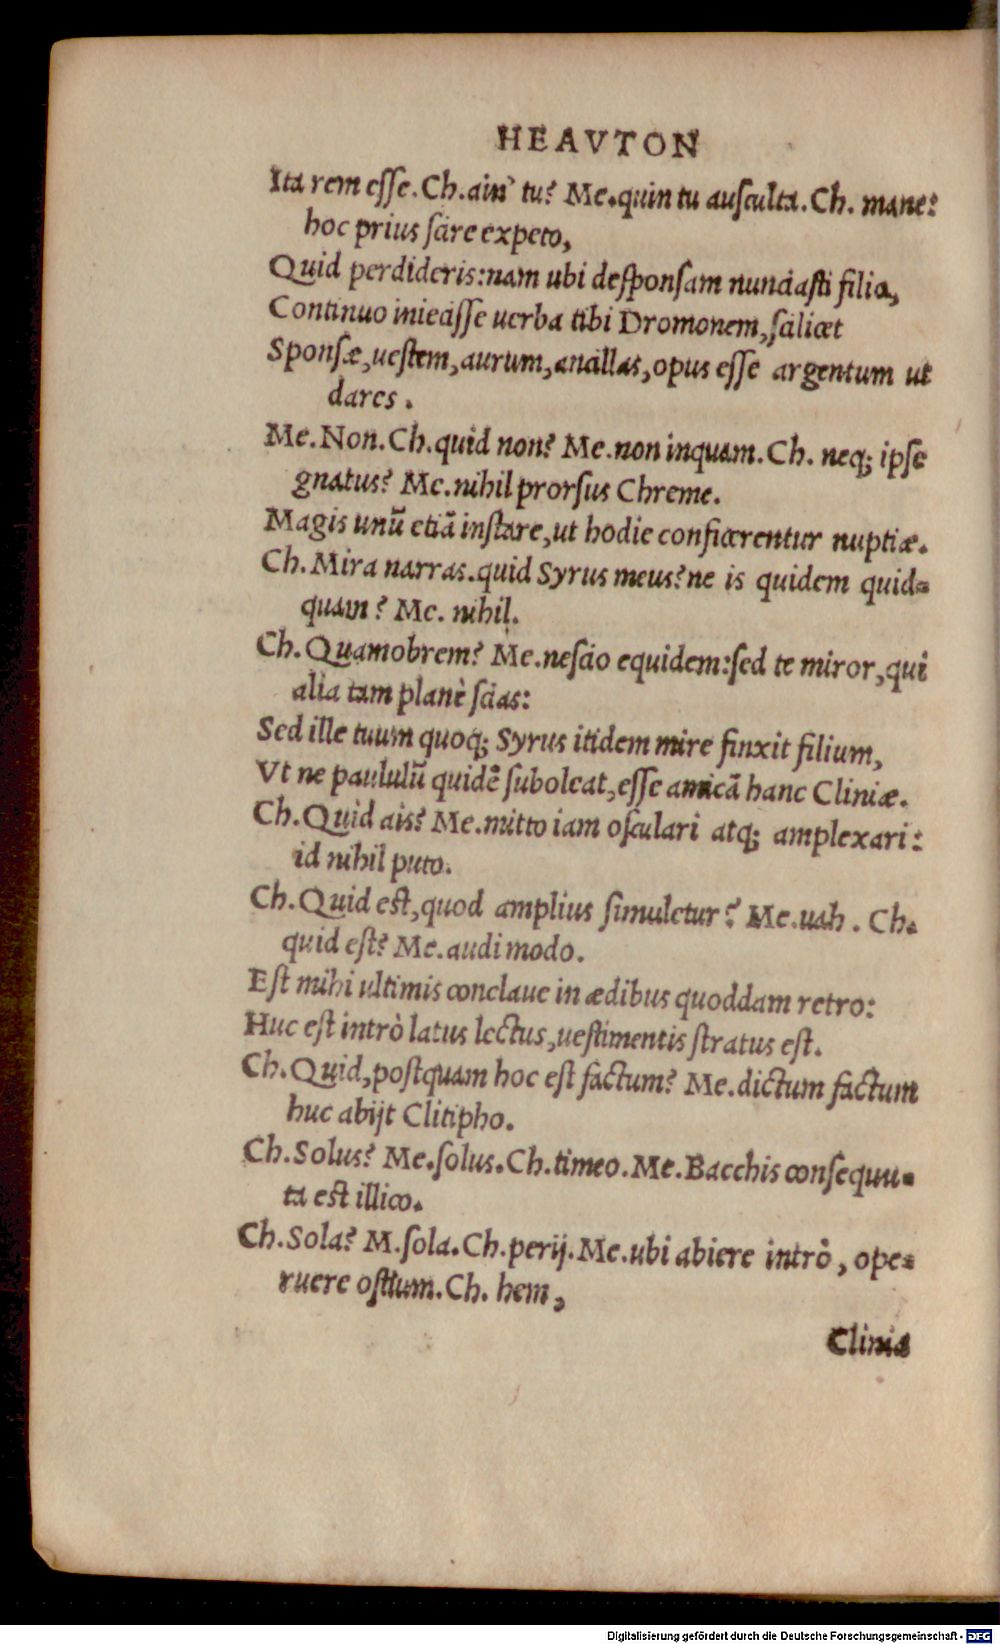 HEAVTON
Ita rem esse. Ch. ain' tu? Me. quin tu ausculta. Ch. mane:
hoc prius scire expeto,
Quid perdideris: nam ubi desponsam nunciasti filio,
Continuo iniecisse uerba tibi Dromonem, scilicet
Sponsæ, uestem, aurum, ancillas, opus esse argentum ut
dares.
Me. Non. Ch. quid non? Me. non inquam. Ch. neq; ipse
gnatus? Me. nihil prorsus Chreme.
Magis unũ etiã instare, ut hodie conficerentur nuptiæ.
Ch. Mira narras. quid Syrus meus? ne is quidem quid=
quam? Me. nihil.
Ch. Quamobrem? Me. nescio equidem: sed te miror, qui
alia tam planè scias:
Sed ille tuum quoq; Syrus itidem mire finxit filium,
Vt ne paululũ quidẽ suboleat, esse amicã hanc Cliniæ.
Ch. Quid ais? Me. mitto iam osculari atq; amplexari:
id nihil puto.
Ch. Quid est, quod amplius simuletur? Me. uah. Ch.
quid est? Me. audi modo.
Est mihi ultimis conclaue in ædibus quoddam retro:
Huc est intrò latus lectus, uestimentis stratus est.
Ch. Quid, postquam hoc est factum? Me. dictum factum
huc abijt Clitipho.
Ch. Solus? Me. solus. Ch. timeo. Me. Bacchis consequu=
ta est illico.
Ch. Sola? M. sola. Ch. perij. Me. ubi abiere intrò, ope=
ruere ostium. Ch. hem,
Cliniæ
Digitalisierung gefördert durch die Deutsche Forschungsgemeinschaft - DFG